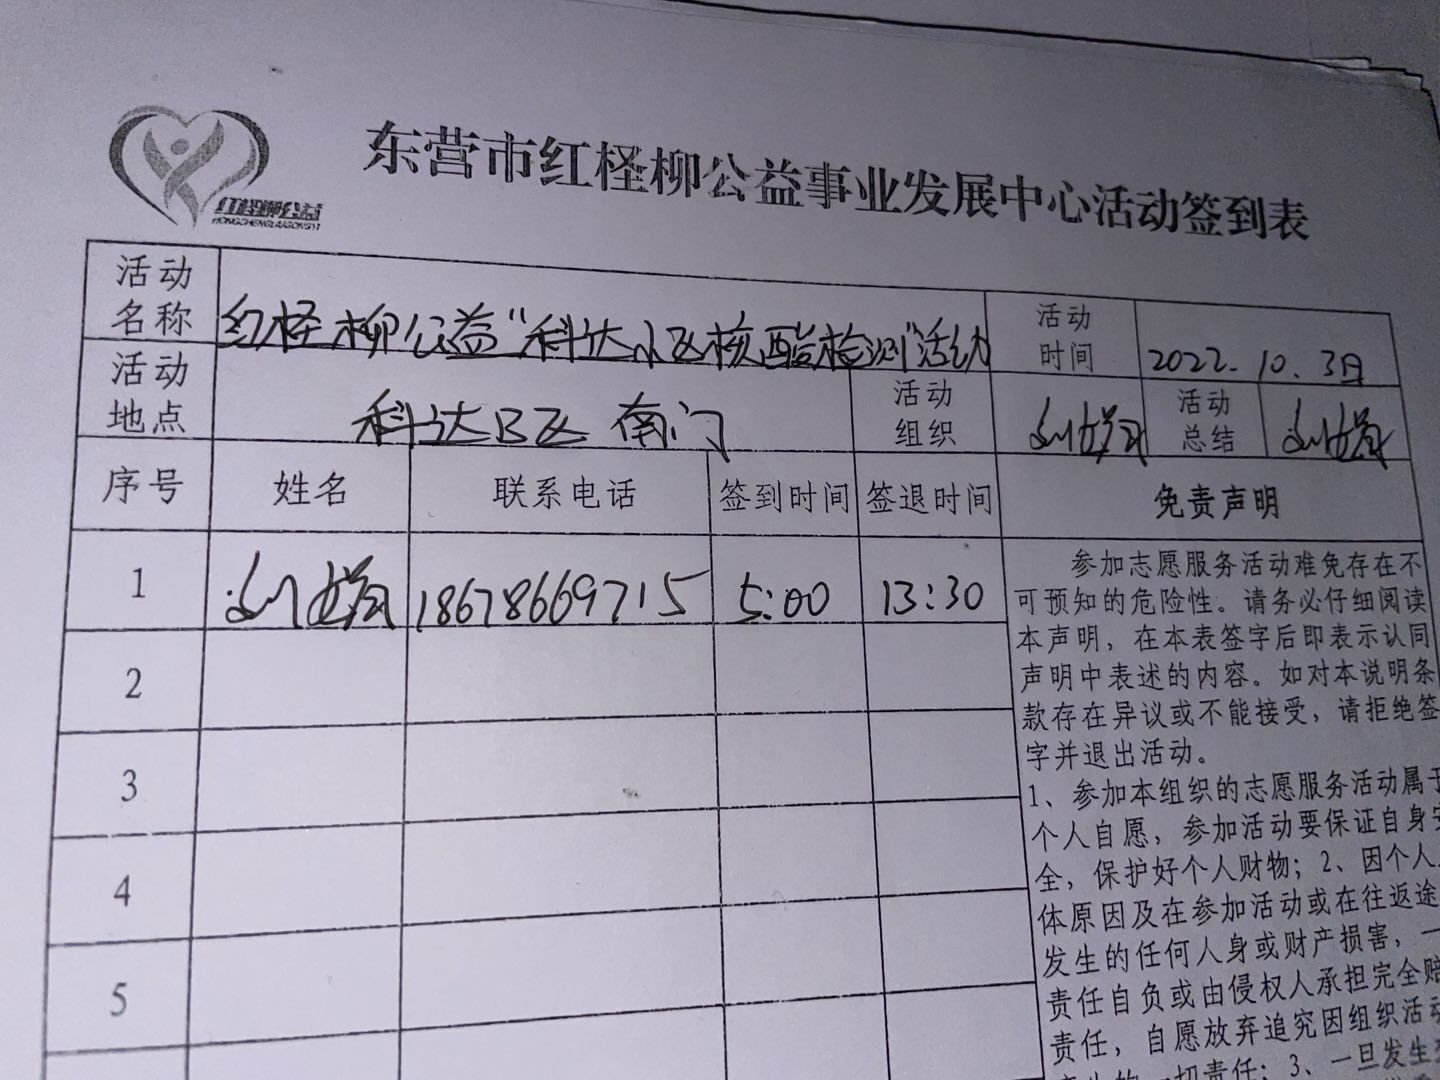 东营市红柽柳公益事业发展中心活动签到表
红柽柳公益
HONGCHENGLIUGONGYI
活动名称 红柽柳公益“科达小区核酸检测”活动 活动时间 2022.10.3日
活动地点 科达B区南门 活动组织 活动总结
序号 姓名 联系电话 签到时间 签退时间 免责声明
1 18678669715 5:00 13:30
2
3
4
5
参加志愿服务活动难免存在不
可预知的危险性。请务必仔细阅读
本声明，在本表签字后即表示认同
声明中表述的内容。如对本说明条
款存在异议或不能接受，请拒绝签
字并退出活动。
1、参加本组织的志愿服务活动属于
个人自愿，参加活动要保证自身安
全，保护好个人财物；2、因个人
体原因及在参加活动或在往返途
发生的任何人身或财产损害，一
责任自负或由侵权人承担完全赔
责任，自愿放弃追究因组织活动
产生的一切责任；3、一旦发生